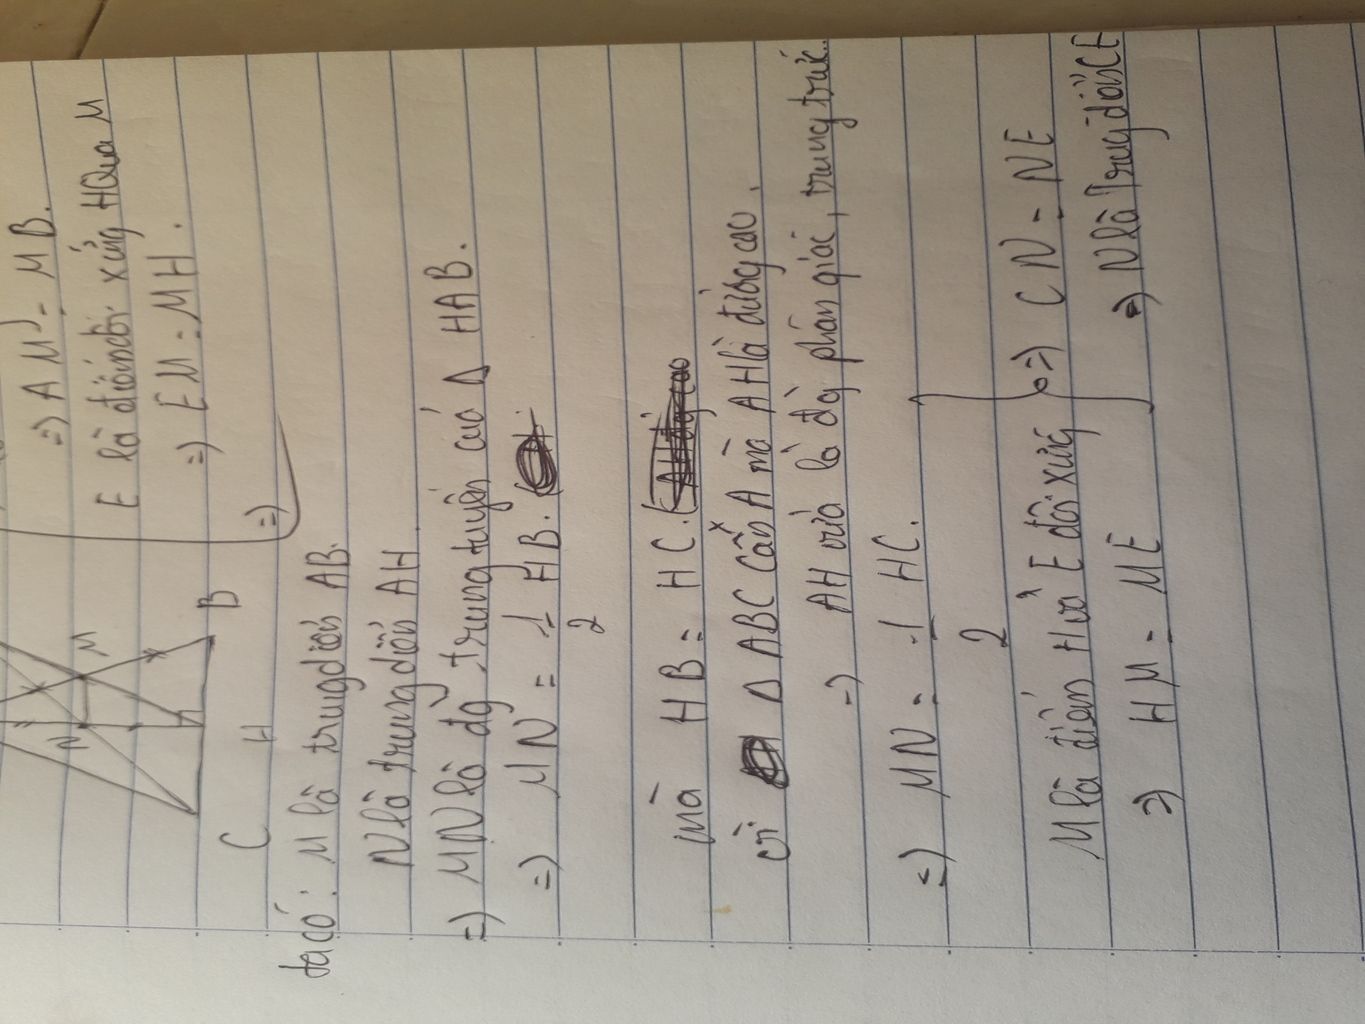 =) AM = MB.
E là điểm đối xứng H Qua M
=) EM = MH.
=)
N
M
C
H
B
ta có : M là trung điểm AB.
N là trung điểm AH
=) MN là đg trung tuyến của Δ HAB.
=) MN = 1/2 HB.
mà HB = HC.
vì Δ ABC cân A mà AH là đường cao.
=) AH vừa là đg phân giác, trung trực..
=) MN = 1/2 HC.
=) CN = NE
M là điểm H và E đối xứng
=) HM = ME
=) N là Trung điểm CE